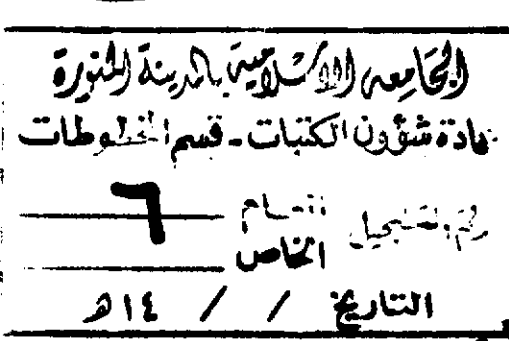 الجامعة الإسلامية بالمدينة المنورة
عمادة شؤون المكتبات - قسم المخطوطات
رقم التسجيل العام ٦
الخاص
التاريخ / / ١٤هـ